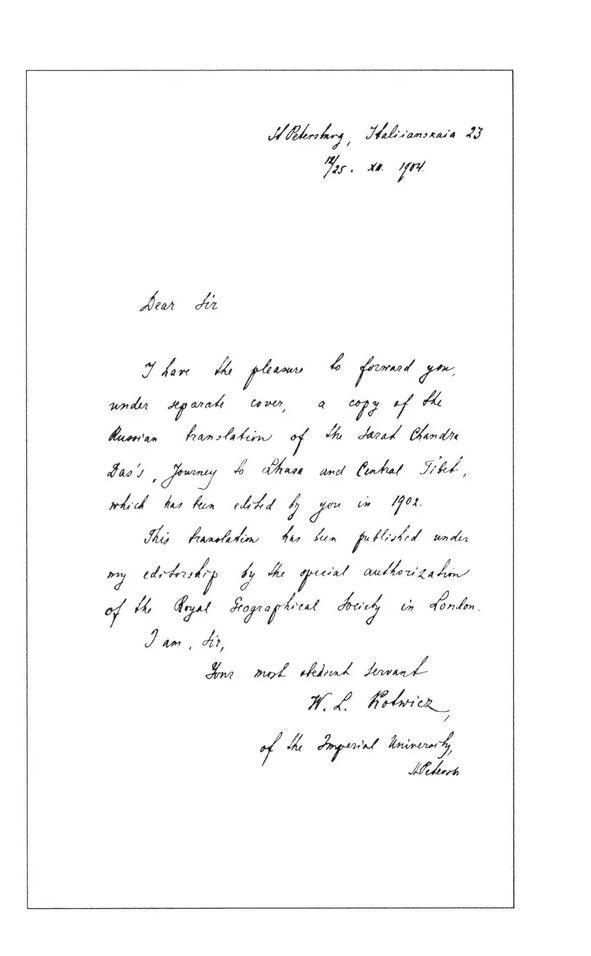 St Petersburg, Italiianskaia 23
12/25. XII. 1904.
Dear Sir
I have the pleasure to forward you,
under separate cover, a copy of the
Russian translation of the Sarat Chandra
Das's „Journey to Lhasa and Central Tibet,
which has been edited by you in 1902.
This translation has been published under
my editorship by the special authorization
of the Royal Geographical Society in London.
I am, Sir,
Your most obedient servant
W. L. Kotwicz,
of the Imperial University,